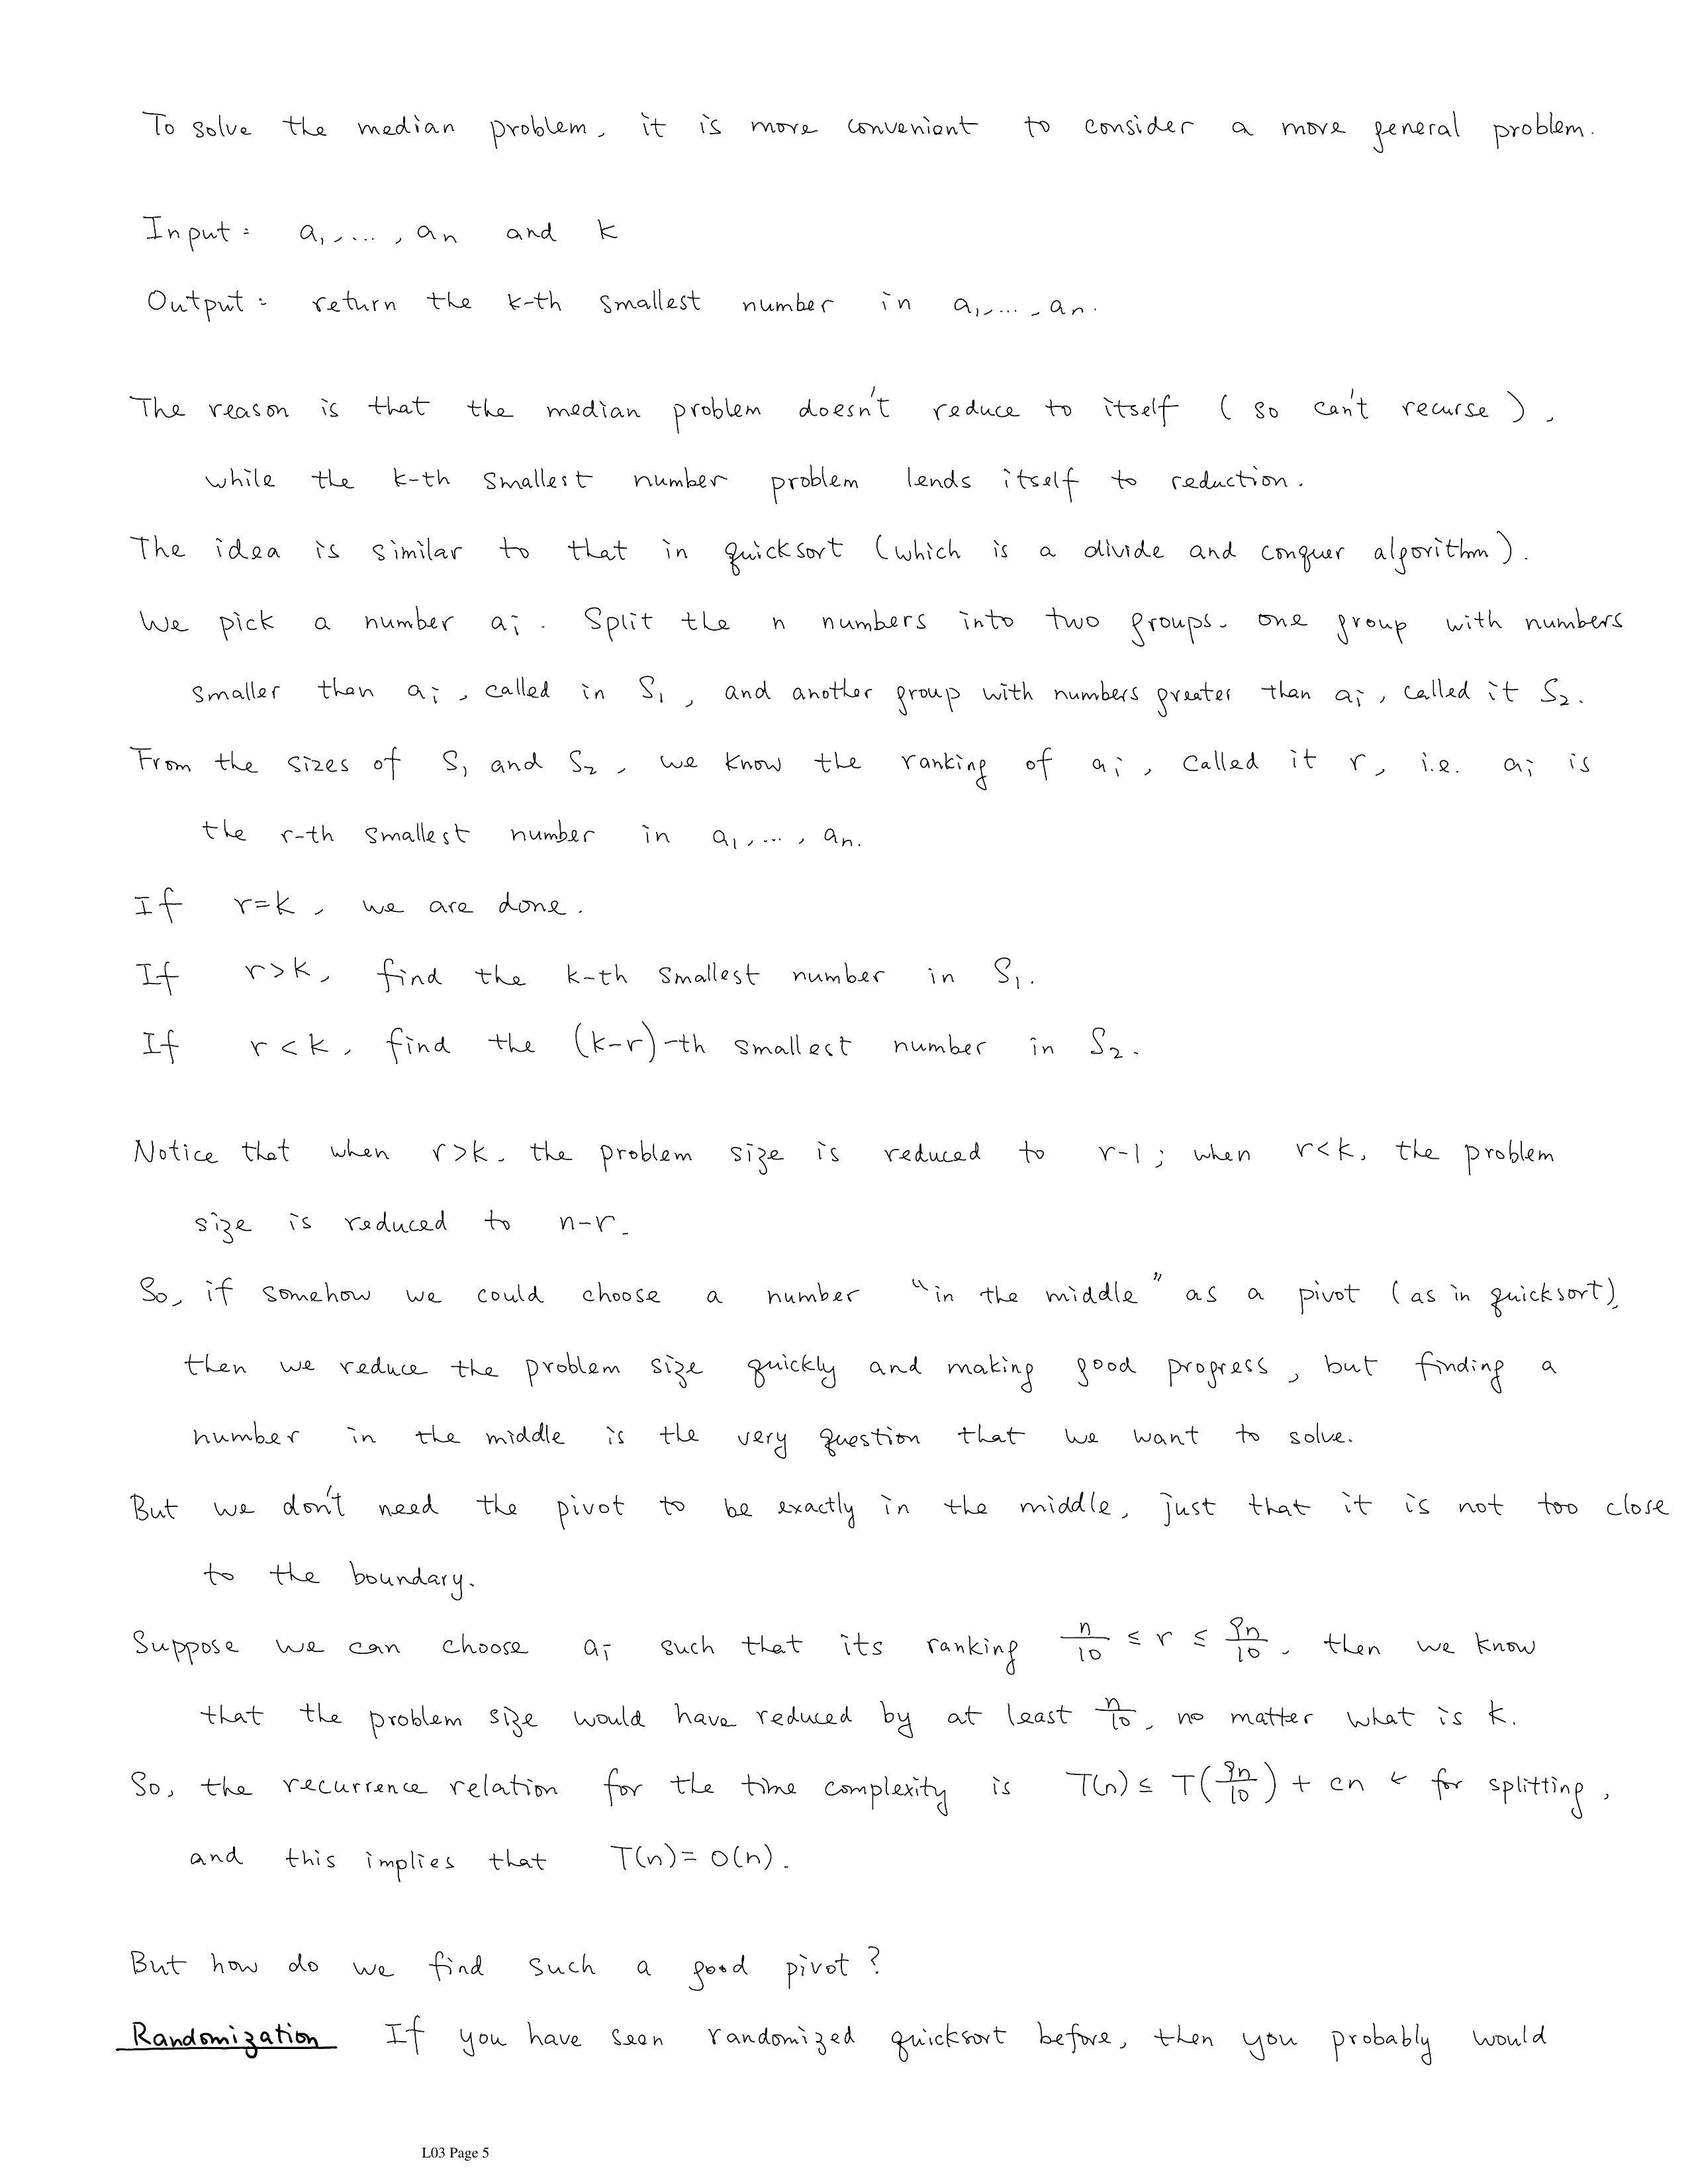 To solve the median problem, it is more convenient to consider a more general problem.
Input: a₁,..., aₙ and k
Output: return the k-th smallest number in a₁,..., aₙ.
The reason is that the median problem doesn't reduce to itself (so can't recurse),
while the k-th smallest number problem lends itself to reduction.
The idea is similar to that in quicksort (which is a divide and conquer algorithm).
We pick a number aᵢ. Split the n numbers into two groups, one group with numbers
smaller than aᵢ, called in S₁, and another group with numbers greater than aᵢ, called it S₂.
From the sizes of S₁ and S₂, we know the ranking of aᵢ, called it r, i.e. aᵢ is
the r-th smallest number in a₁,..., aₙ.
If r=k, we are done.
If r>k, find the k-th smallest number in S₁.
If r<k, find the (k-r)-th smallest number in S₂.
Notice that when r>k, the problem size is reduced to r-1; when r<k, the problem
size is reduced to n-r.
So, if somehow we could choose a number "in the middle" as a pivot (as in quicksort),
then we reduce the problem size quickly and making good progress, but finding a
number in the middle is the very question that we want to solve.
But we don't need the pivot to be exactly in the middle, just that it is not too close
to the boundary.
Suppose we can choose aᵢ such that its ranking n/10 ≤ r ≤ 9n/10, then we know
that the problem size would have reduced by at least n/10, no matter what is k.
So, the recurrence relation for the time complexity is T(n) ≤ T(9n/10) + cn ← for splitting,
and this implies that T(n)= O(n).
But how do we find such a good pivot?
Randomization If you have seen randomized quicksort before, then you probably would
L03 Page 5